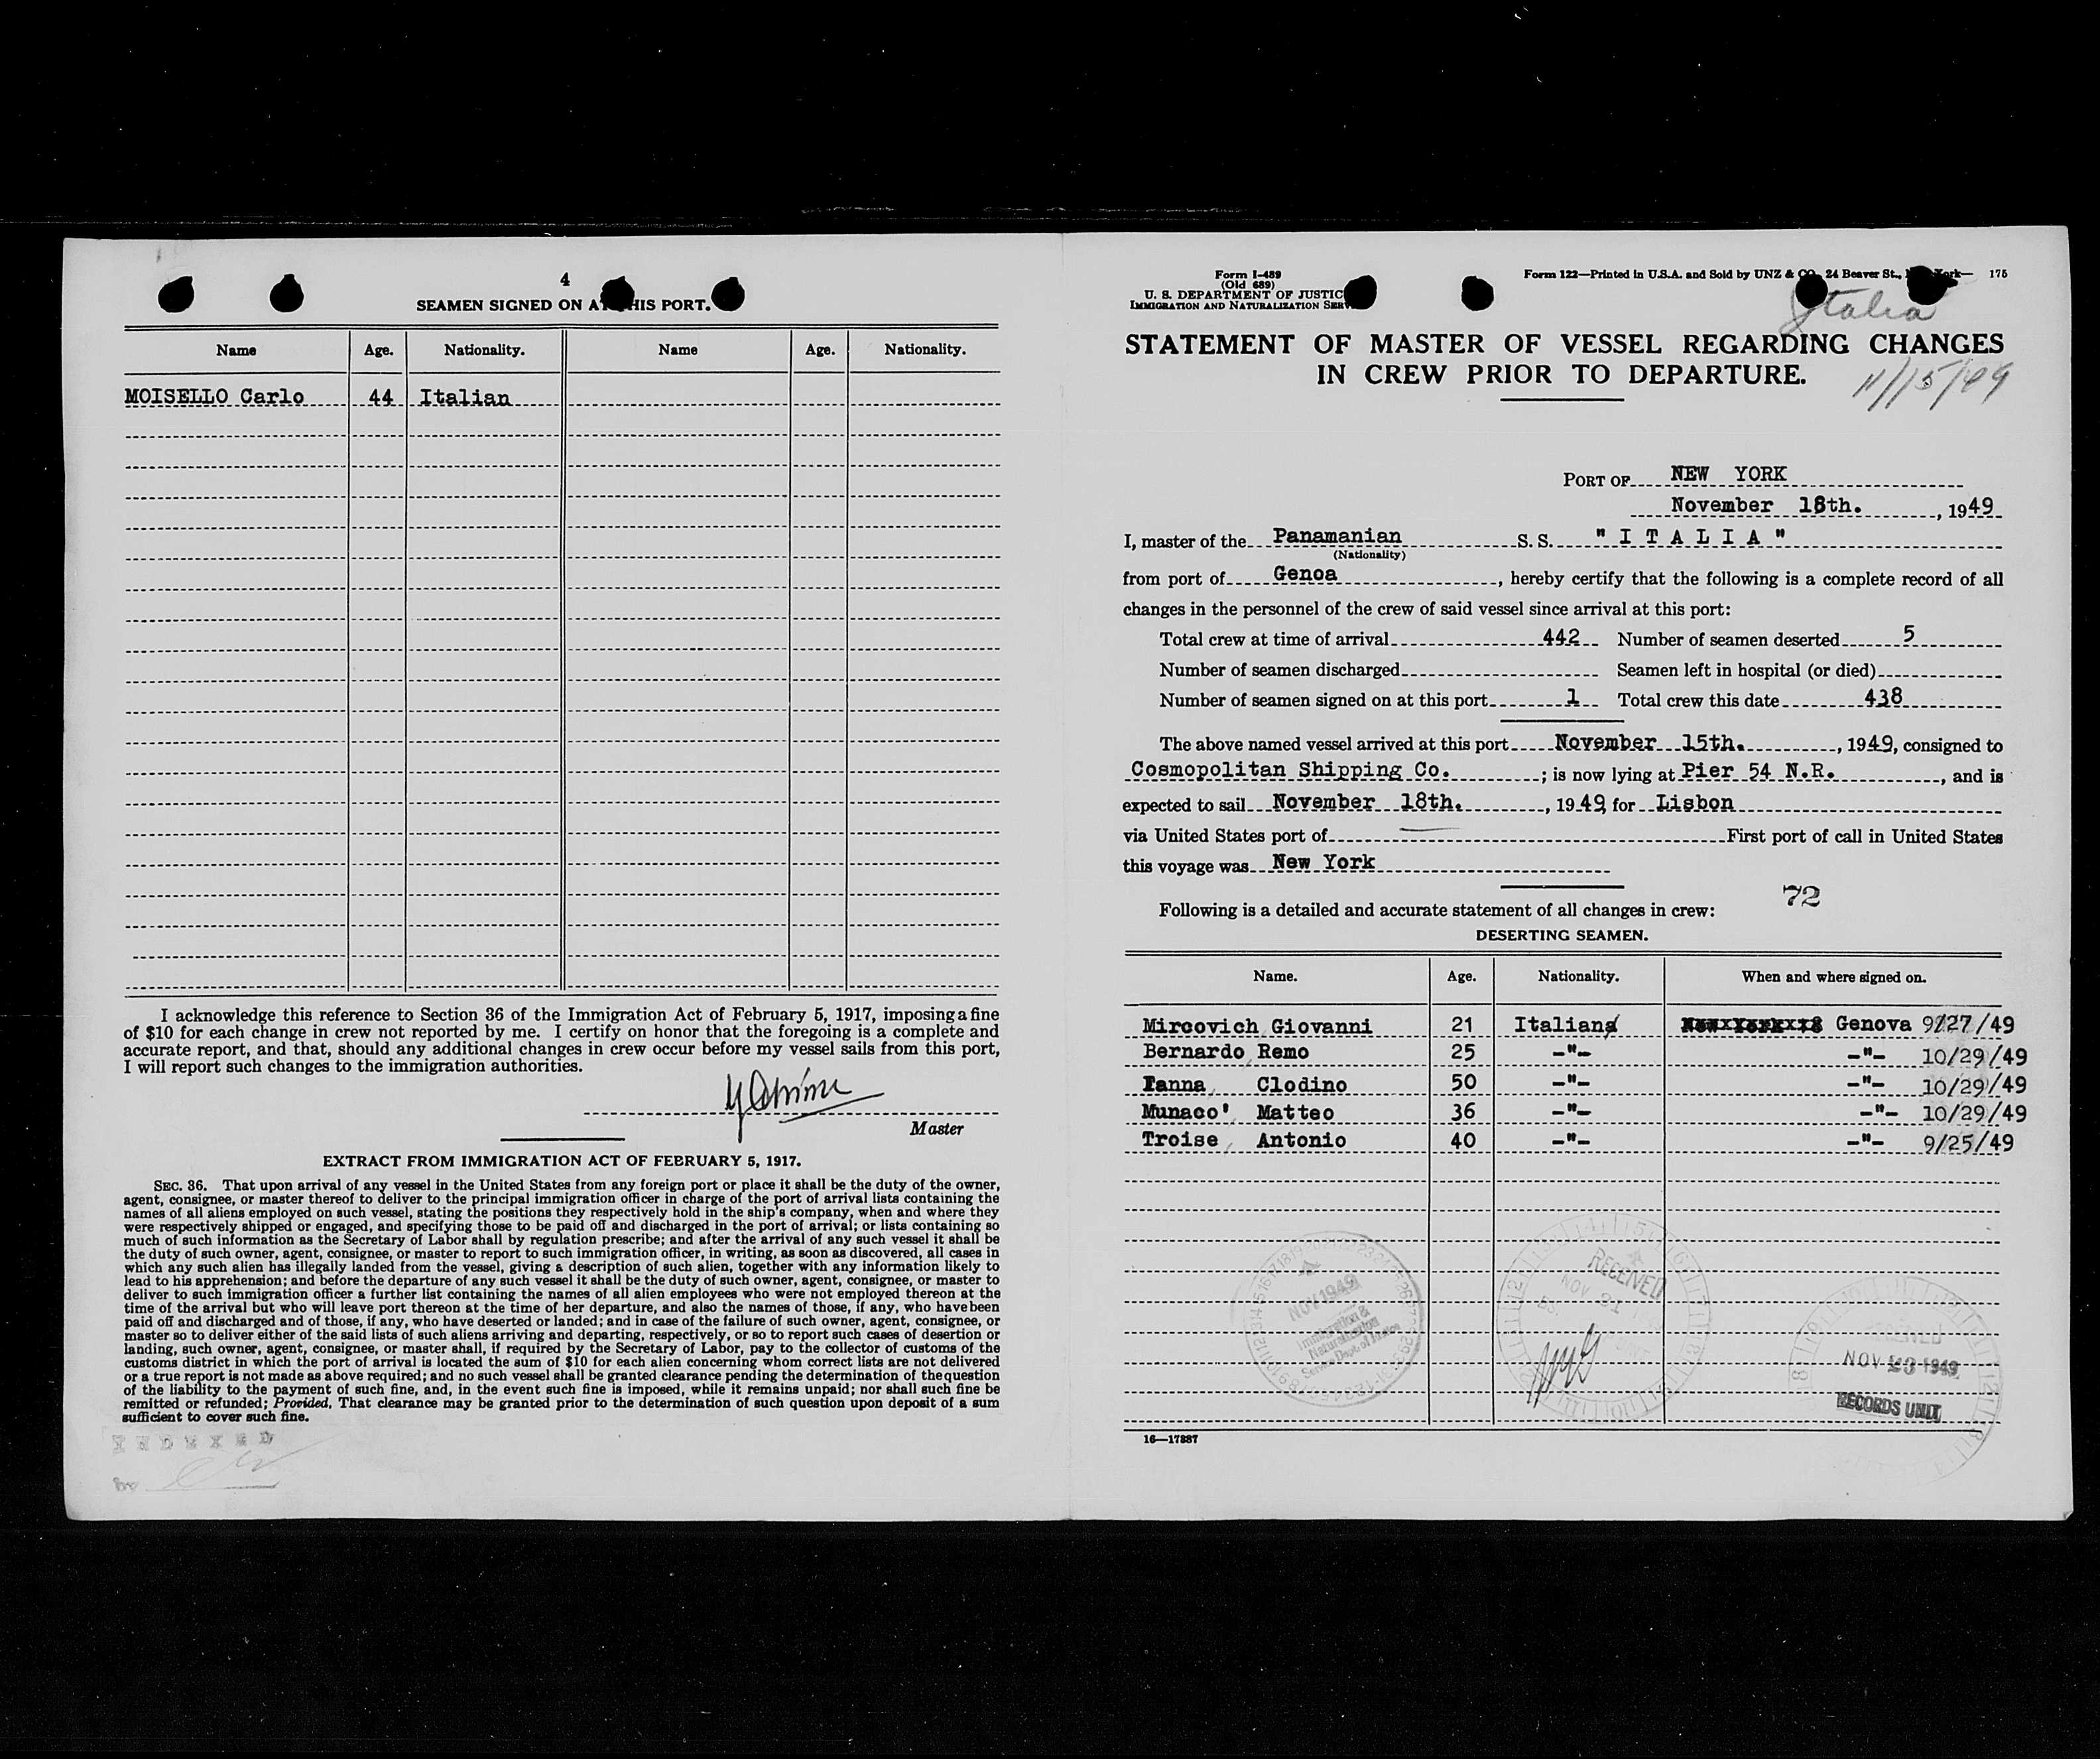 4
SEAMEN SIGNED ON AT THIS PORT.
Name Age. Nationality. Name Age. Nationality.
MOISELLO Carlo 44 Italian
I acknowledge this reference to Section 36 of the Immigration Act of February 5, 1917, imposing a fine
of $10 for each change in crew not reported by me. I certify on honor that the foregoing is a complete and
accurate report, and that, should any additional changes in crew occur before my vessel sails from this port,
I will report such changes to the immigration authorities.
Master
EXTRACT FROM IMMIGRATION ACT OF FEBRUARY 5, 1917.
SEC. 36. That upon arrival of any vessel in the United States from any foreign port or place it shall be the duty of the owner,
agent, consignee, or master thereof to deliver to the principal immigration officer in charge of the port of arrival lists containing the
names of all aliens employed on such vessel, stating the positions they respectively hold in the ship's company, when and where they
were respectively shipped or engaged, and specifying those to be paid off and discharged in the port of arrival; or lists containing so
much of such information as the Secretary of Labor shall by regulation prescribe; and after the arrival of any such vessel it shall be
the duty of such owner, agent, consignee, or master to report to such immigration officer, in writing, as soon as discovered, all cases in
which any such alien has illegally landed from the vessel, giving a description of such alien, together with any information likely to
lead to his apprehension; and before the departure of any such vessel it shall be the duty of such owner, agent, consignee, or master to
deliver to such immigration officer a further list containing the names of all alien employees who were not employed thereon at the
time of the arrival but who will leave port thereon at the time of her departure, and also the names of those, if any, who have been
paid off and discharged and of those, if any, who have deserted or landed; and in case of the failure of such owner, agent, consignee, or
master so to deliver either of the said lists of such aliens arriving and departing, respectively, or so to report such cases of desertion or
landing, such owner, agent, consignee, or master shall, if required by the Secretary of Labor, pay to the collector of customs of the
customs district in which the port of arrival is located the sum of $10 for each alien concerning whom correct lists are not delivered
or a true report is not made as above required; and no such vessel shall be granted clearance pending the determination of the question
of the liability to the payment of such fine, and, in the event such fine is imposed, while it remains unpaid; nor shall such fine be
remitted or refunded; Provided, That clearance may be granted prior to the determination of such question upon deposit of a sum
sufficient to cover such fine.
INDEXED
Form I-489
(Old 689)
U. S. DEPARTMENT OF JUSTIC
IMMIGRATION AND NATURALIZATION SERV
Form 122—Printed in U.S.A. and Sold by UNZ & CO., 24 Beaver St., New York— 175
Italia
STATEMENT OF MASTER OF VESSEL REGARDING CHANGES
IN CREW PRIOR TO DEPARTURE.
11/15/49
PORT OF NEW YORK
November 18th., 1949
I, master of the Panamanian S. S. " I T A L I A "
(Nationality)
from port of Genoa, hereby certify that the following is a complete record of all
changes in the personnel of the crew of said vessel since arrival at this port:
Total crew at time of arrival 442 Number of seamen deserted 5
Number of seamen discharged Seamen left in hospital (or died)
Number of seamen signed on at this port 1 Total crew this date 438
The above named vessel arrived at this port November 15th., 1949, consigned to
Cosmopolitan Shipping Co.; is now lying at Pier 54 N.R., and is
expected to sail November 18th., 1949, for Lisbon
via United States port of — First port of call in United States
this voyage was New York
72
Following is a detailed and accurate statement of all changes in crew:
DESERTING SEAMEN.
Name. Age. Nationality. When and where signed on.
Mircovich Giovanni 21 Italians Genova 9/27/49
Bernardo Remo 25 -"- -"- 10/29/49
Panna Clodino 50 -"- -"- 10/29/49
Munaco' Matteo 36 -"- -"- 10/29/49
Troise Antonio 40 -"- -"- 9/25/49
NOV 1949
Immigration &
Naturalization
Service Dept. of Justice
RECEIVED
NOV 21
NOV 23 1949
RECORDS UNIT
16—17887